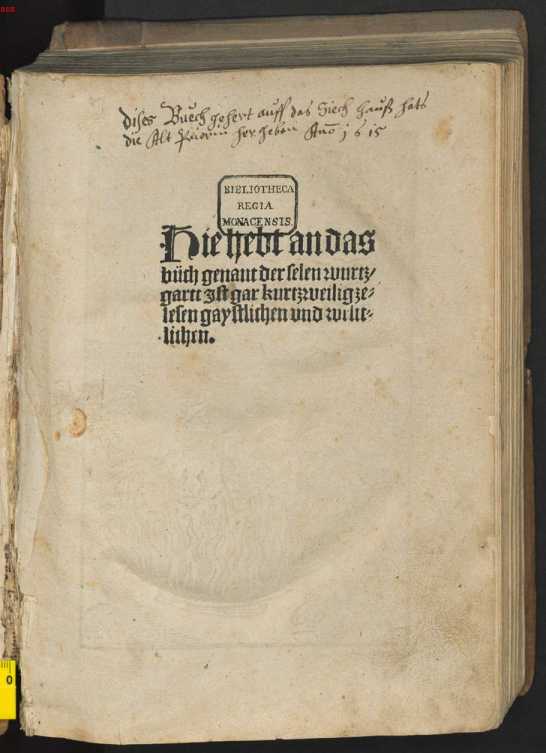 dises Buech gehert auff das Siech hauß hats
die Alt Priorin her geben Anō 1615
BIBLIOTHECA
REGIA
MONACENSIS.
Hie hebt an das
bůch genant der selen wurtz/
gartt Jst gar kurtzweilig ze⸗
lesen gaystlichen vnd weltt⸗
lichen.
0